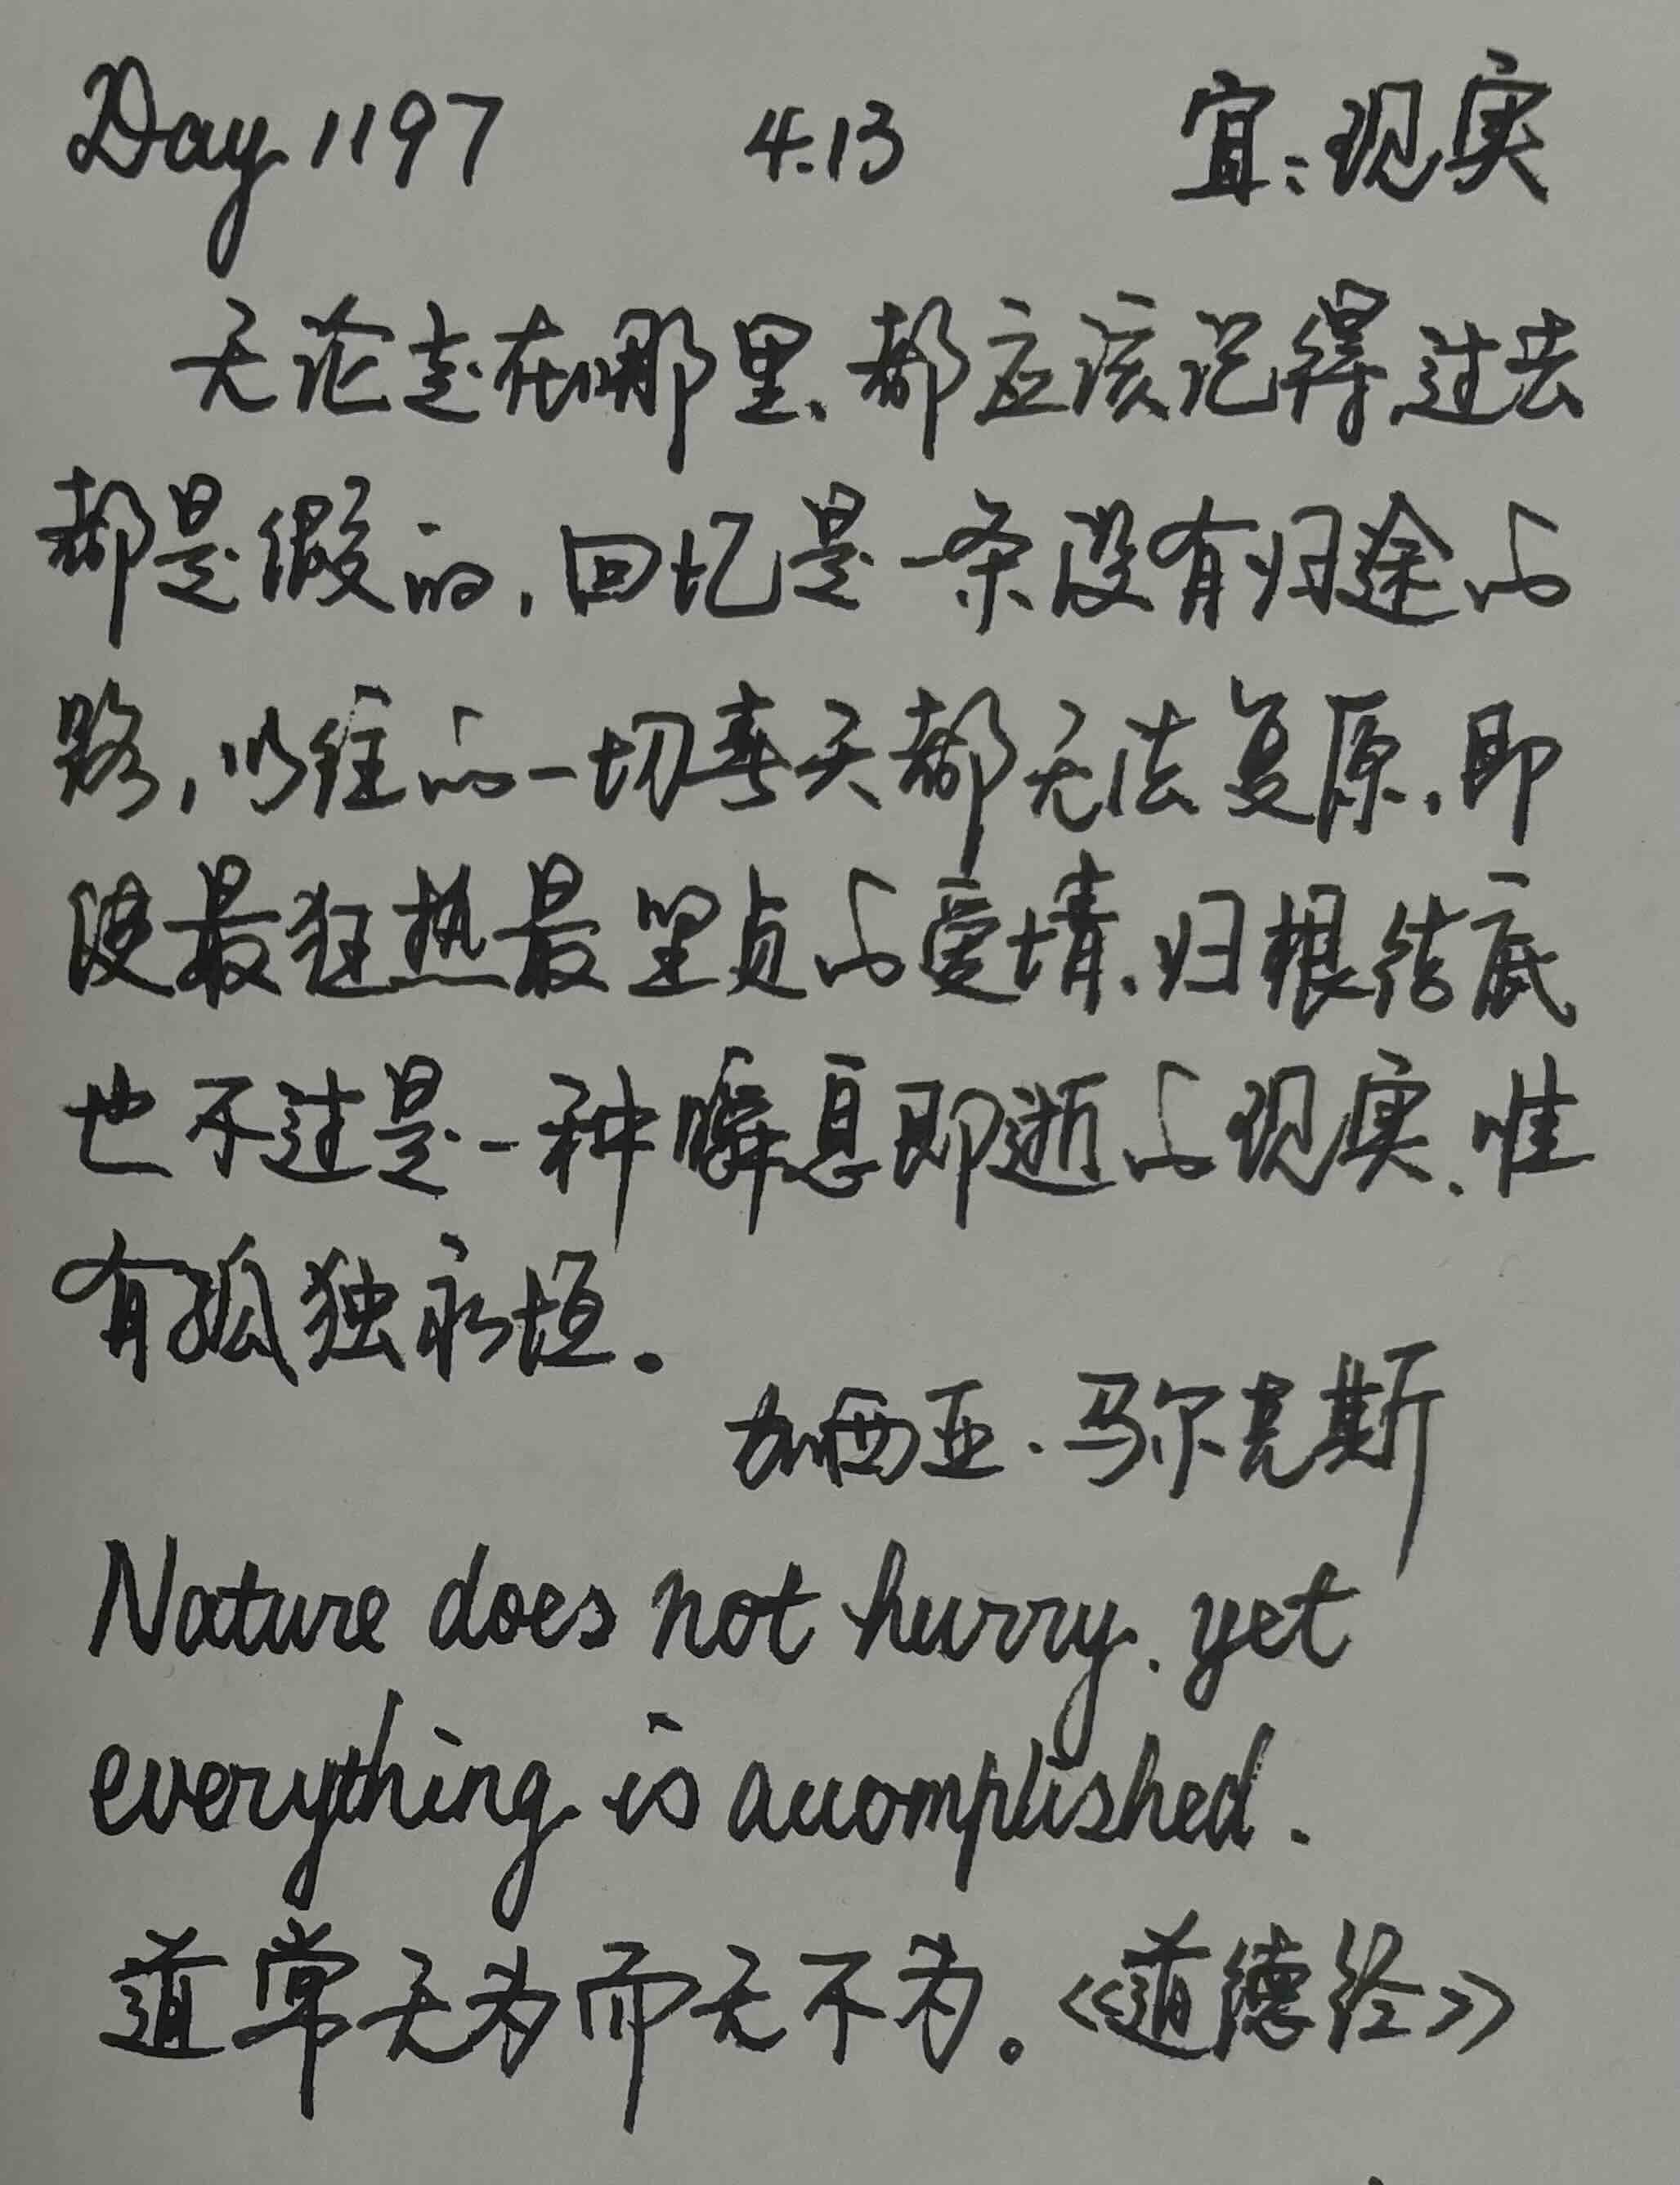 Day 1197 4.13 宜:现实
无论走在哪里、都应该记得过去
都是假的,回忆是一条没有归途的
路,以往的一切春天都无法复原、即
使最狂热最坚贞的爱情、归根结底
也不过是一种瞬息即逝的现实、唯
有孤独永恒。
加西亚·马尔克斯
Nature does not hurry, yet
everything is accomplished.
道常无为而无不为。《道德经》